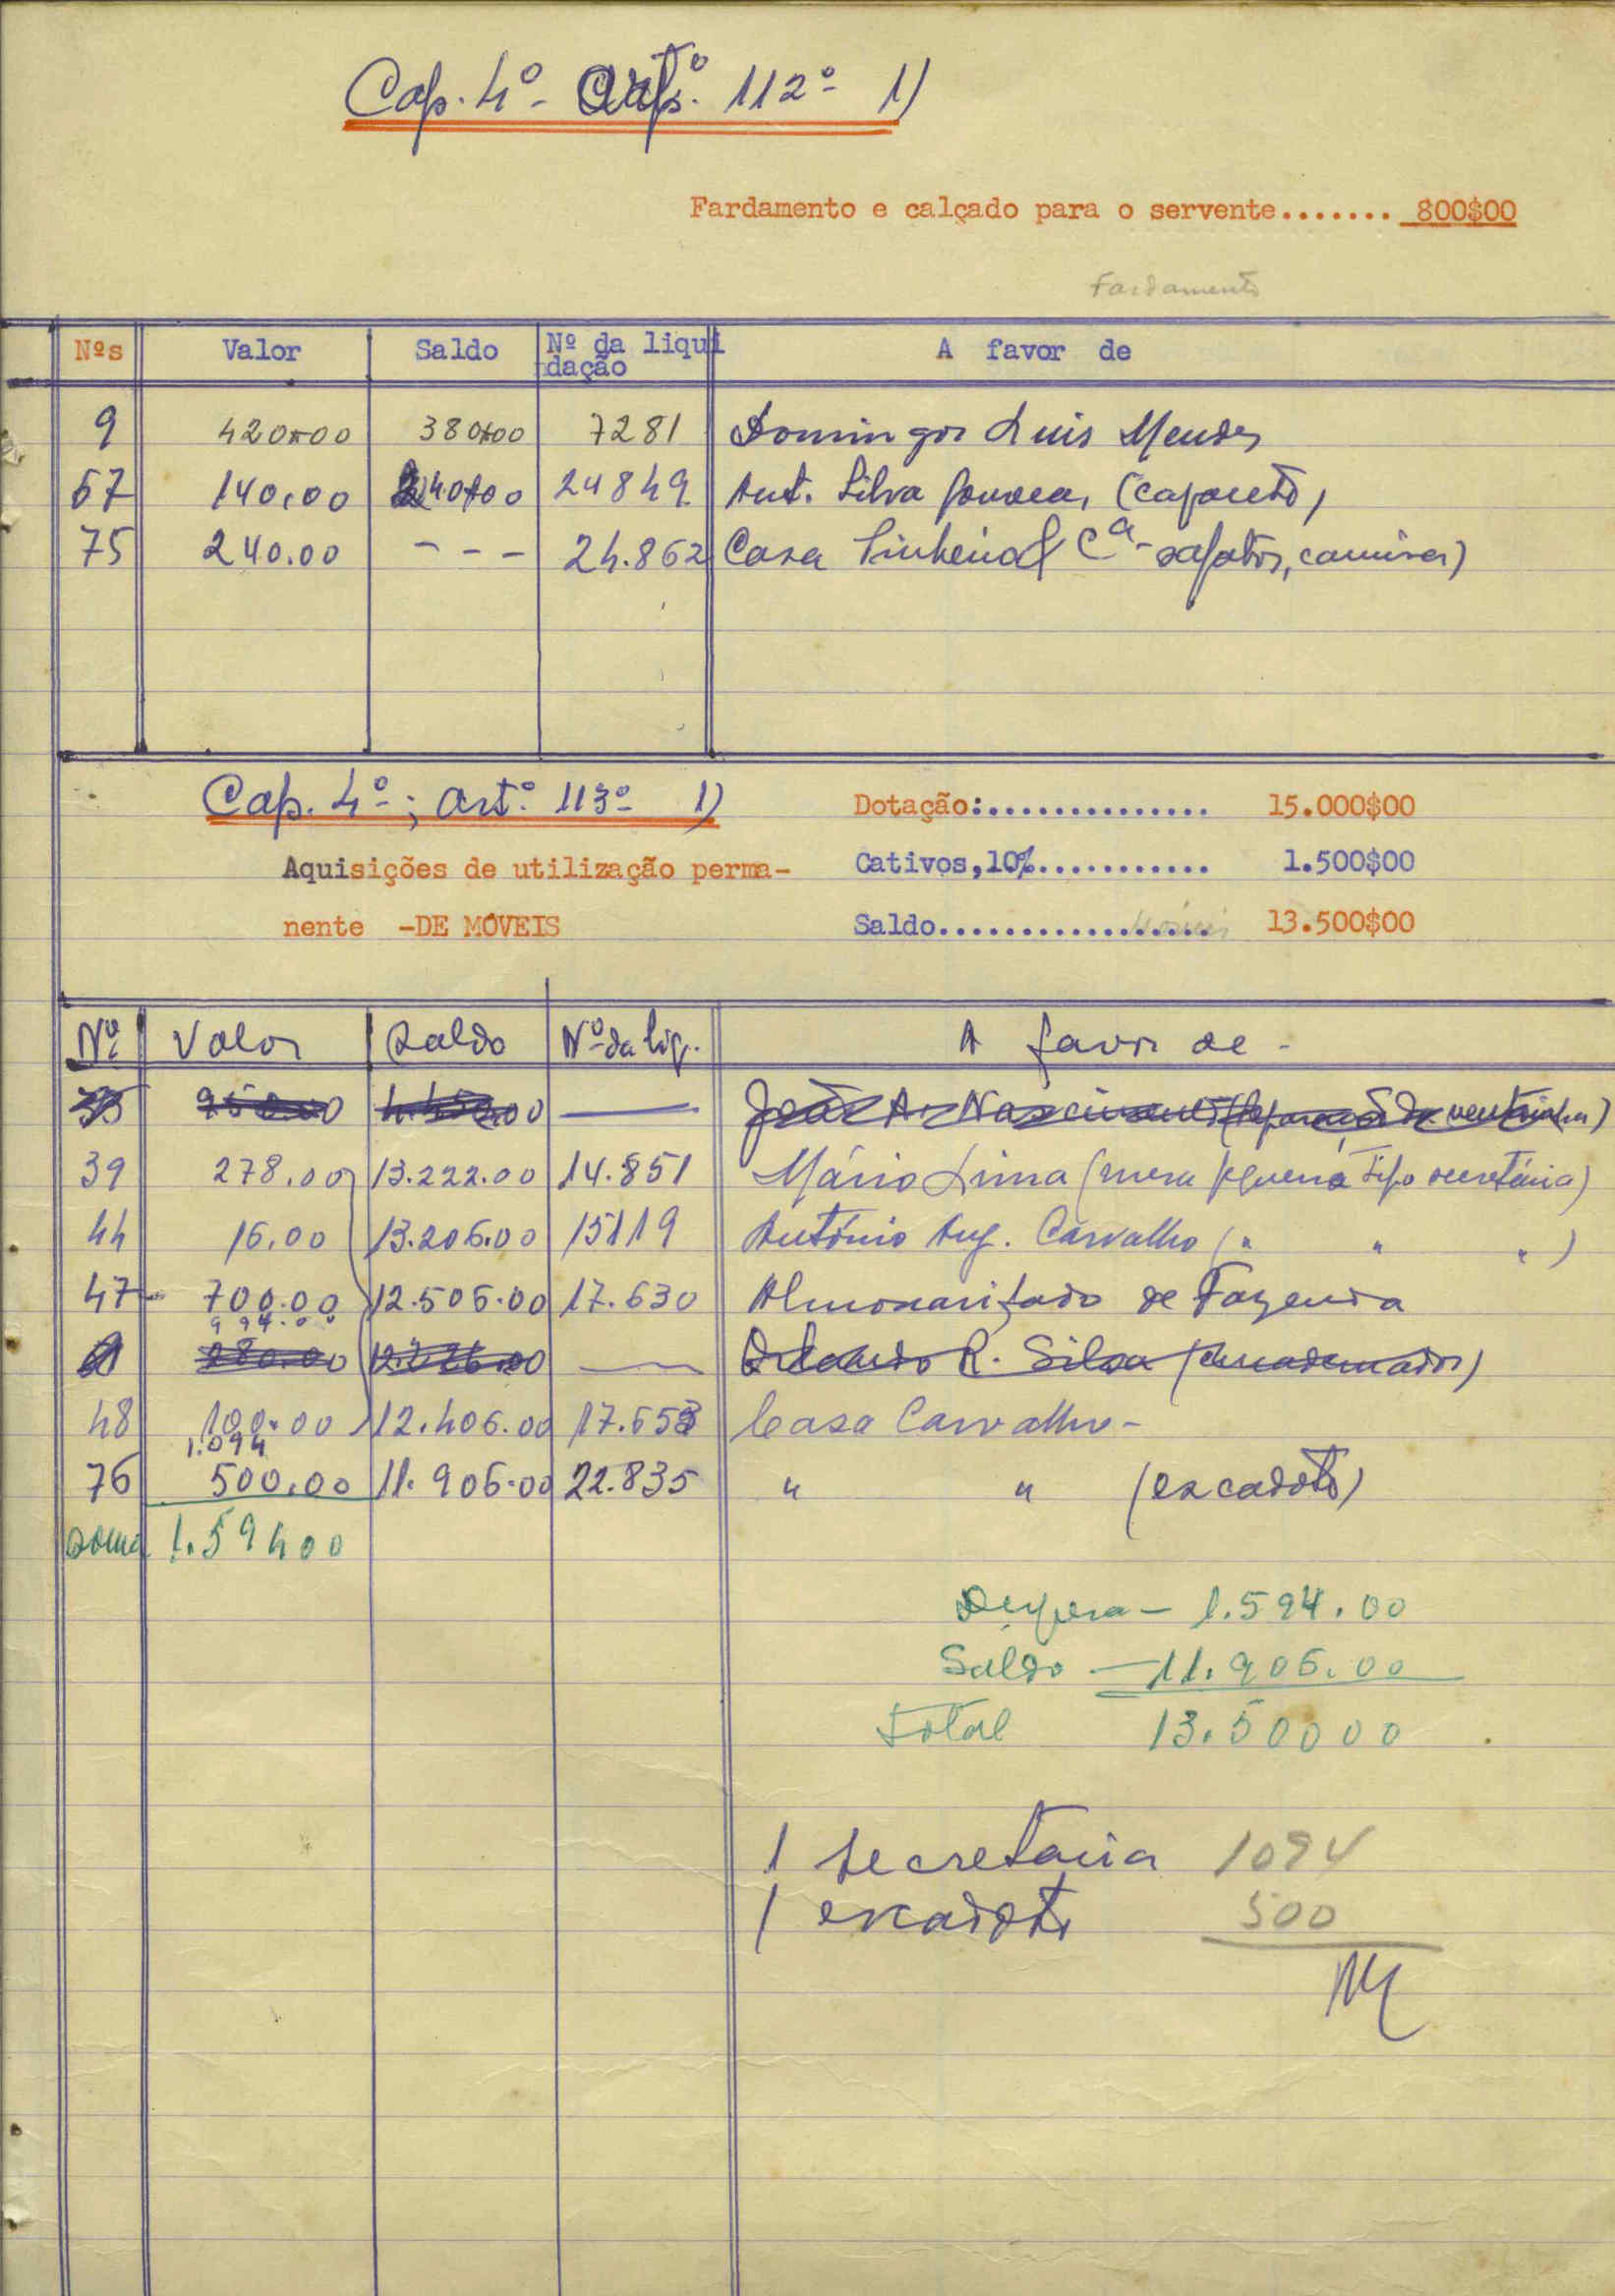 Cap. 4º - Artº. 112º 1)
Fardamento e calçado para o servente....... 800$00
Fardamento
Nºs Valor Saldo Nº da liqui A favor de
dação
9 420$00 380$00 7281 Domingos Luis Mendes
67 140,00 240$00 24849 Ant. Silva Gouveia, (capacete)
75 240.00 - - - 24.862 Casa Pinheiro & Cª - sapatos, camisas)
Cap. 4º; artº 113º 1) Dotação:.............. 15.000$00
Aquisições de utilização perma- Cativos,10%........... 1.500$00
nente -DE MÓVEIS Saldo................. 13.500$00
Móveis
Nº Valor Saldo Nº da liq. A favor de -
950.00 4.450.00 — João A. Nascimento (Reparação de ventoinha)
39 278.00 13.222.00 14.851 Mário Lima (mesa pequena tipo secretária)
44 16.00 13.206.00 15119 António Aug. Carvalho (" " ")
47 - 700.00 12.506.00 17.630 Almoxarifado de Fazenda
994.00
280.00 12.226.00 — R. Silva (encadernador)
48 100.00 12.406.00 17.653 Casa Carvalho -
1.094
76 500.00 11.906.00 22.835 " " (escadote)
Soma 1.594 00
Despesa - 1.594.00
Saldo - 11.906.00
Total 13.500 00
1 secretaria 1094
1 escadote 500